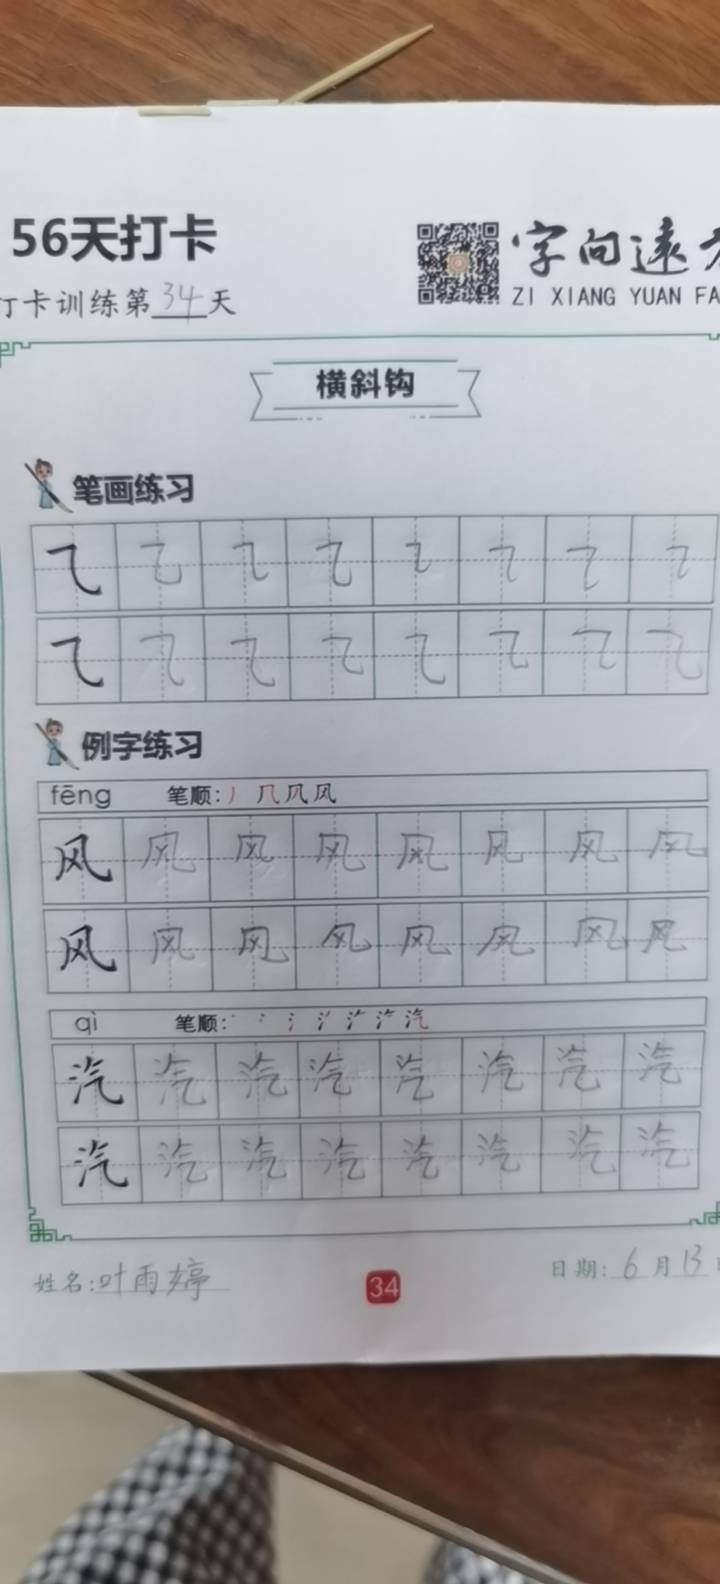 56天打卡
字向远
ZI XIANG YUAN FA
打卡训练第34天
横斜钩
笔画练习
例字练习
fēng 笔顺:丿几凤风
风风风风风风风风
风风风风风风风风
qì 笔顺:丶 冫 氵 汽
汽汽汽汽汽汽汽汽
汽汽汽汽汽汽汽汽
姓名:叶雨婷
34
日期:6月13日